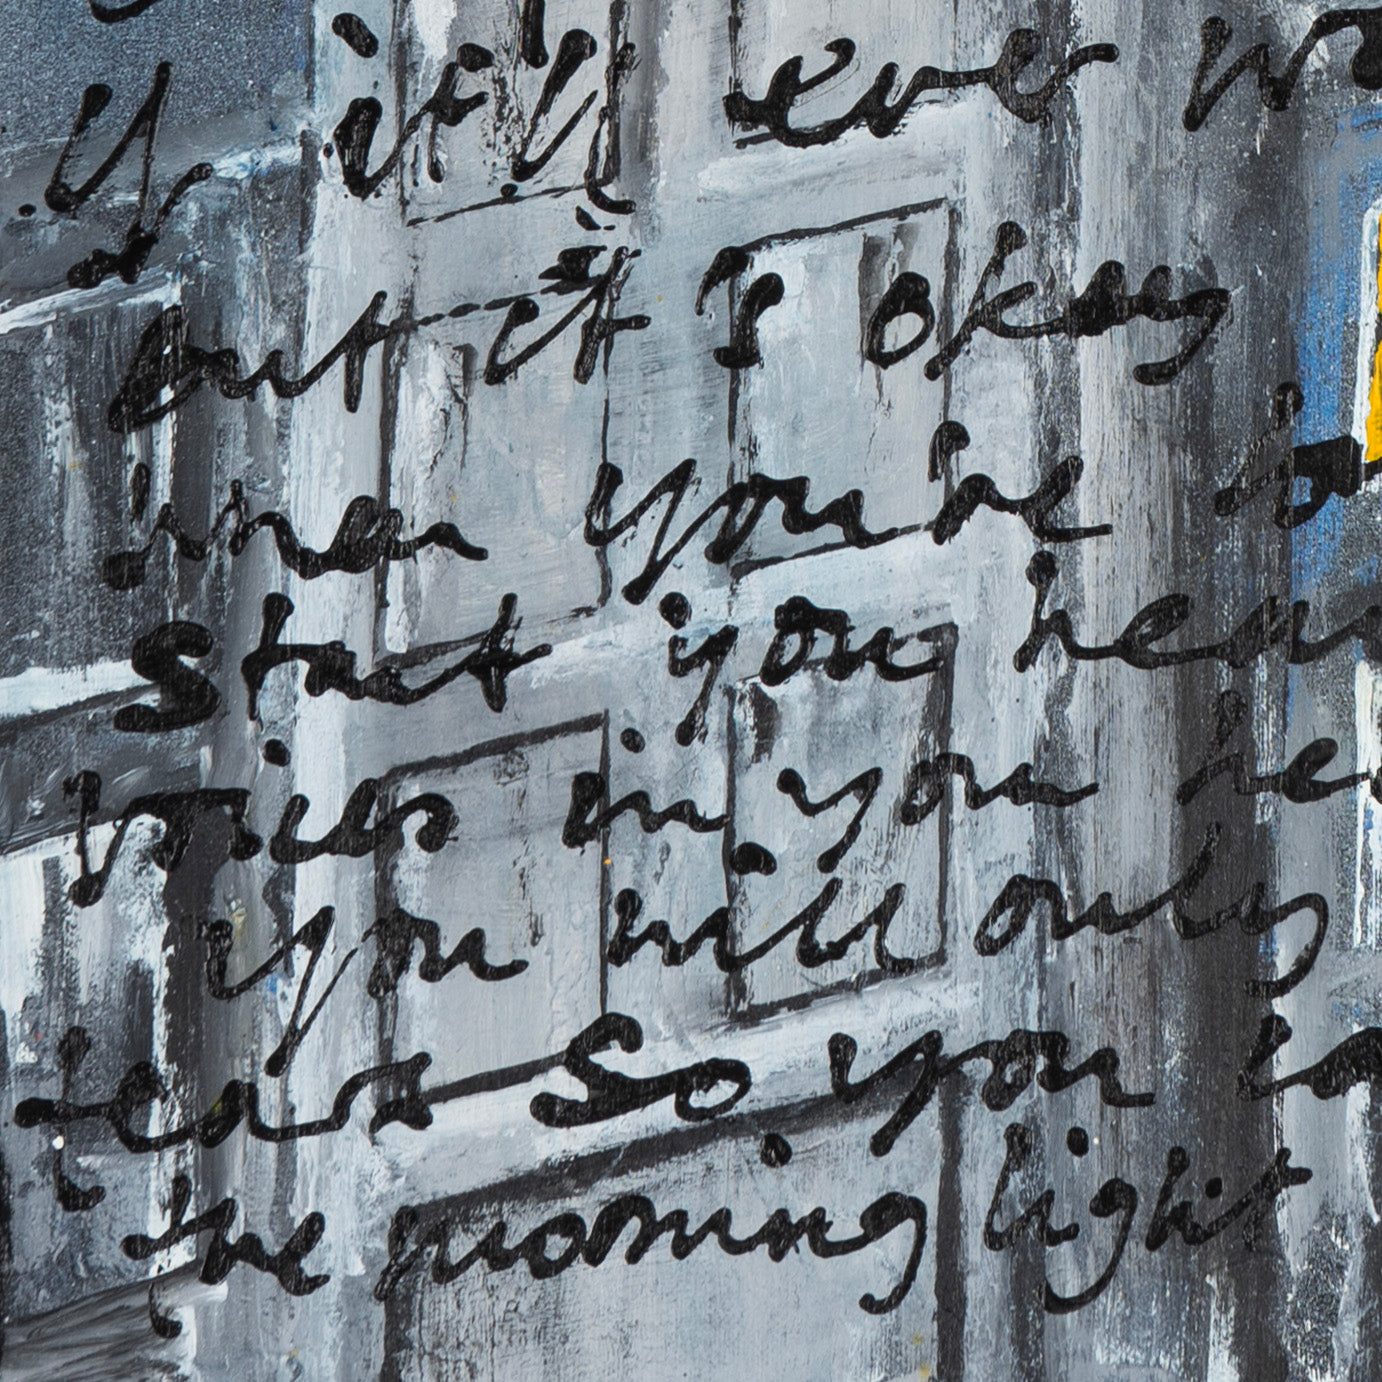 if it'll ever
but it's okay
you're
start you hear
voices in you
you will only
tear so you
the morning light